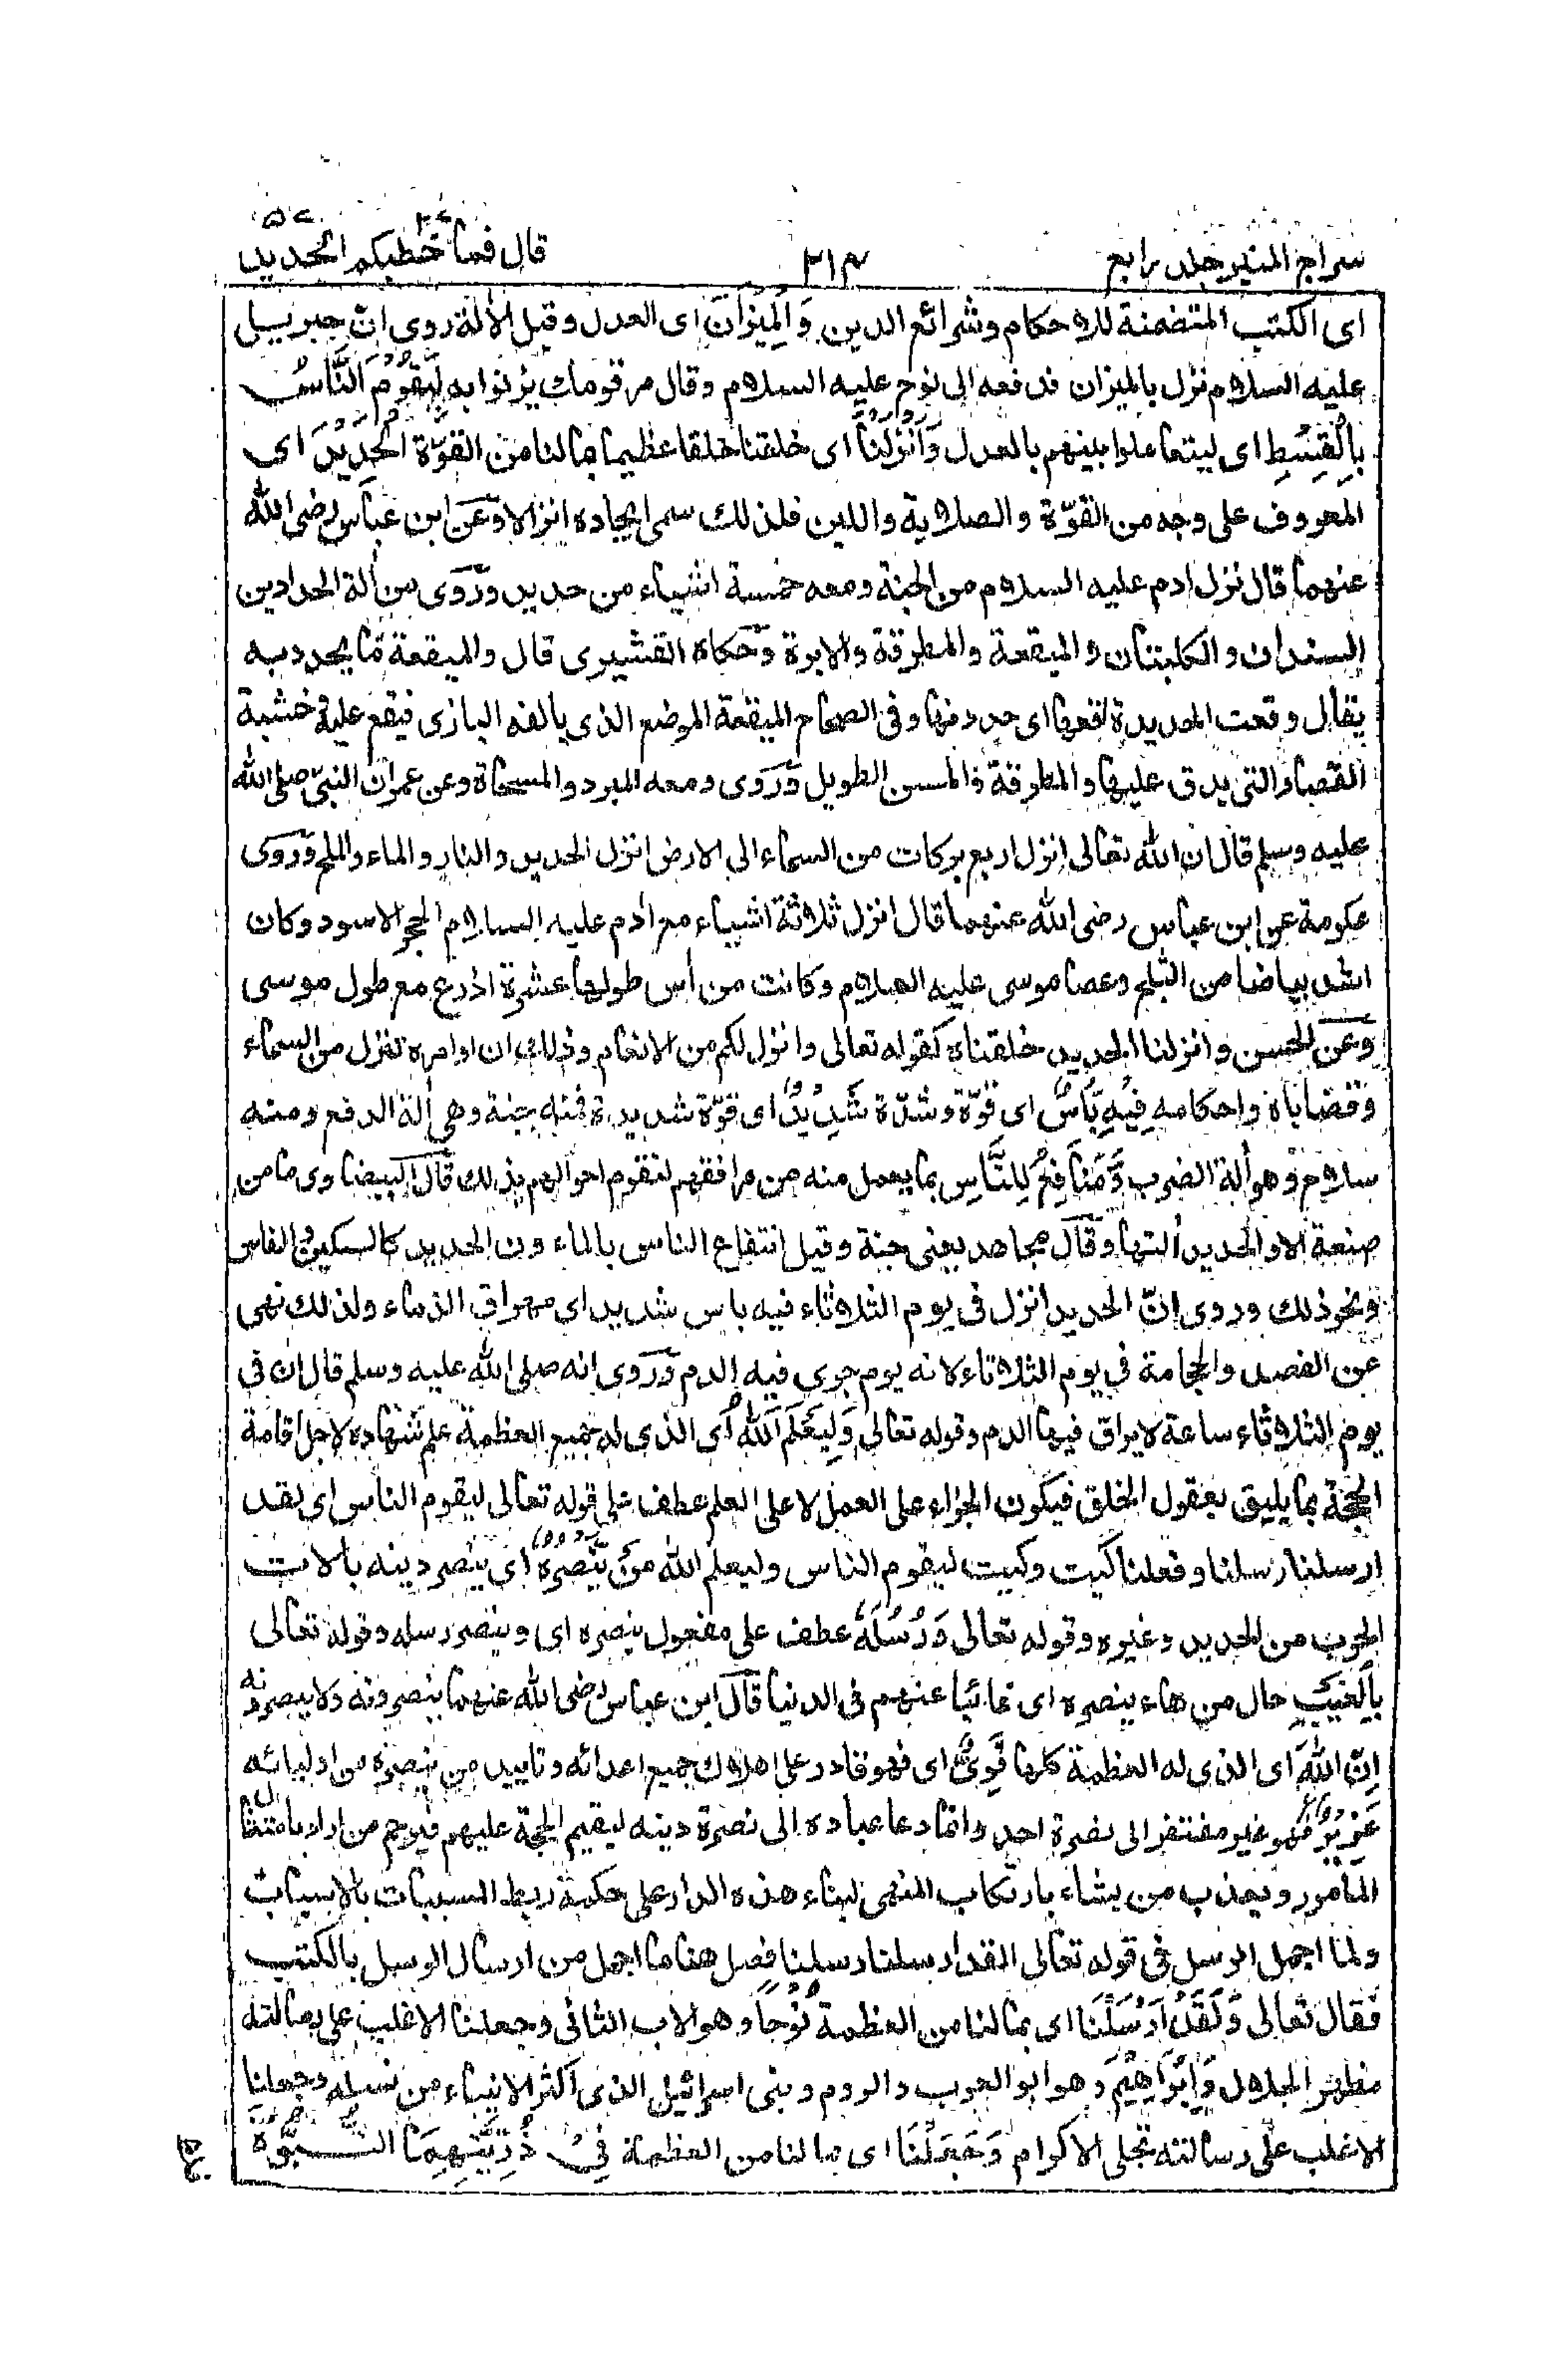 سراج المنير جلد رابع
٣١٣
قال فما خطبكم ٢٧ الحديد ٥٧
اى الكتب المتضمنة للاحكام وشرائع الدين وَالْمِيْزَانَ اى العدل وقيل الألة روى انّ جبرييل
عليه السلام نزل بالميزان فدفعه الى نوح عليه السلام وقال مر قومك يزنوا به لِيَقُوْمَ النَّاسُ
بِالْقِسْطِ اى ليتعاملوا بينهم بالعدل وَاَنْزَلْنَا اى خلقنا خلقا عظيما بمالنا من القوّة الْحَدِيْدَ اى
المعروف على وجه من القوّة والصلابة واللين فلذلك سمى ايجاده انزالا وعن ابن عباس رضى الله
عنهما قال نزل ادم عليه السلام من الجنة ومعه خمسة اشياء من حديد وروى من ألة الحدادين
السندان والكلبتان والميقعة والمطرقة والابرة وحكاه القشيرى قال والميقعة ما يحدد به
يقال وقعت الحديدة اقعها اى حددتها وفى الصحاح الميقعة الموضع الذى يالفه البازى فيقع عليه وخشبة
القصار التى يدق عليها والمطرقة والمسن الطويل وروى ومعه المبرد والمسحاة وعن عمر ان النبىّ صلى الله
عليه وسلم قال ان الله تعالى انزل اربع بركات من السماء الى الارض انزل الحديد والنار والماء والملح وروى
عكرمة عن ابن عباس رضى الله عنهما قال انزل ثلاثة اشياء مع أدم عليه السلام الحجر الاسود وكان
اشد بياضا من الثلج وعصا موسى عليه السلام وكانت من أس طولها عشرة اذرع مع طول موسى
وعن الحسن وانزلنا الحديد خلقناه كقوله تعالى وانزل لكم من الانعام وذلك ان اوامره تنزل من السماء
وقضاياه واحكامه فِيْهِ بَأْسٌ اى قوّة وشدّة شَدِيْدٌ اى قوّة شديدة فمنه جنة وهى ألة الدفع ومنه
سلاح وهو ألة الضرب وَّمَنَافِعُ لِلنَّاسِ بما يعمل منه من مرافقهم لتقوم احوالهم بذلك قال البيضاوى ما من
صنعة الا والحديد ألتها وقال مجاهد يعنى جنة وقيل انتفاع الناس بالماء ون الحديد كالسكين والفاس
ونحو ذلك وروى انّ الحديد انزل فى يوم الثلاثاء فيه باس شديد اى مهراق الدماء ولذلك نهى
عن الفصد والحجامة فى يوم الثلاثاء لانه يوم جرى فيه الدم وروى انه صلى الله عليه وسلم قال ان فى
يوم الثلاثاء ساعة لا يراق فيها الدم وقوله تعالى وَلِيَعْلَمَ اللّٰهُ اى الذى له جميع العظمة علم شهادة لاجل اقامة
الحجة بما يليق بعقول الخلق فيكون الجزاء على العمل لا على العلم عطف على قوله تعالى ليقوم الناس اى لقد
ارسلنا رسلنا وفعلنا كيت وكيت ليقوم الناس وليعلم الله مَنْ يَّنْصُرُهٗ اى ينصر دينه بألات
الحرب من الحديد وغيره وقوله تعالى وَرُسُلَهٗ عطف على مفعول ينصره اى وينصر رسله وقوله تعالى
بِالْغَيْبِ حال من هاء ينصره اى غائبا عنهم فى الدنيا قال ابن عباس رضى الله عنهما ينصرونه ولا يبصرونه
اِنَّ اللّٰهَ اى الذى له العظمة كلها قَوِىٌّ اى فهو قادر على اهلاك جميع اعدائه وتاييد من ينصره من اوليائه
عَزِيْزٌ فهو غير مفتقر الى نصرة احد وانما دعا عباده الى نصرة دينه ليقيم الحجة عليهم فيرحم من اراد بامتثال
المامور ويعذب من يشاء بارتكاب المنهى لبناء هذه الدار على حكمة ربط المسببات بالاسباب
ولما اجمل الرسل فى قوله تعالى لقد ارسلنا رسلنا فصل هنا ما اجمل من ارسال الرسل بالكتب
فقال تعالى وَلَقَدْ اَرْسَلْنَا اى بمالنا من العظمة نُوْحًا وهو الاب الثانى وجعلنا الاغلب على رسالته
مظهر الجلال وَّاِبْرَاهِيْمَ وهو ابو العرب والروم وبنى اسرائيل الذى اكثر الانبياء من نسله وجعلنا
الاغلب على رسالته تجلى الاكرام وَجَعَلْنَا اى بما لنا من العظمة فِىْ ذُرِّيَّتِهِمَا النُّبُوَّةَ